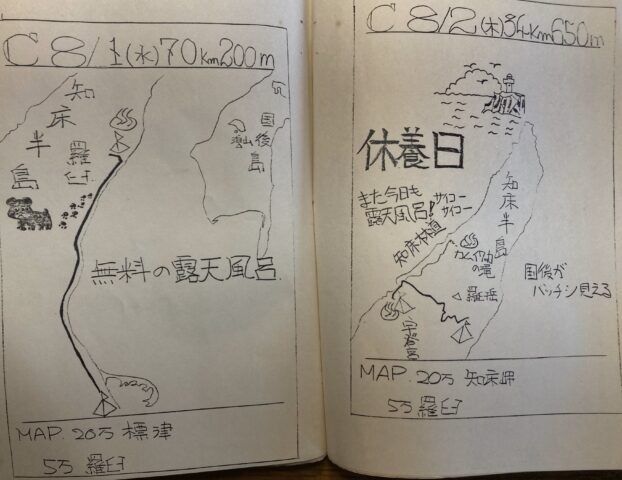 C 8/1(水)70km200m
知床半島
羅臼
国後島
無料の露天風呂.
MAP. 20万 標津
5万 羅臼
C 8/2(木)34km650m
休養日
また今日も
露天風呂!サイコー
サイコー
知床林道
知床半島
カムイワッカ
の滝
国後が
バッチシ見える
羅臼岳
MAP. 20万 知床岬
5万 羅臼